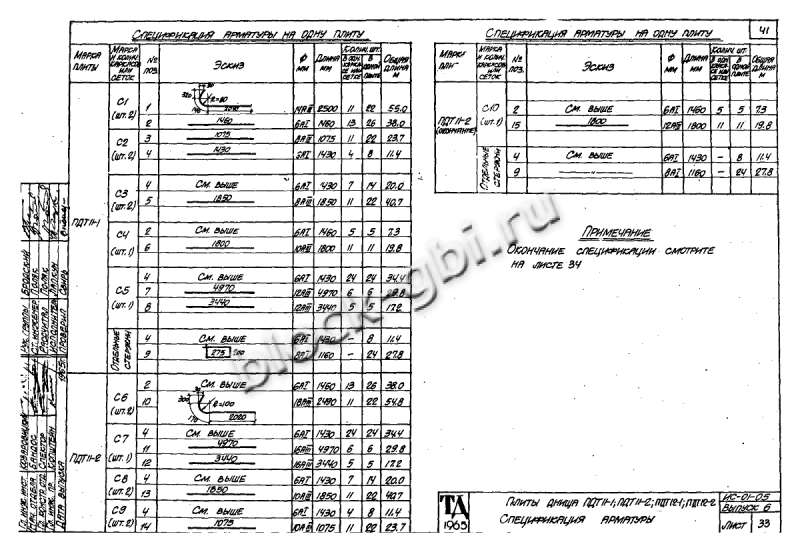 41
Спецификация арматуры на одну плиту
Марка плиты | Марка и колич. каркасов или сеток | № поз. | Эскиз | Ф мм | Длина мм | Колич. шт. в одн. каркасе или сетке | в одной плите | Общая длина м
ПДТ11-1
С1 (шт. 2) | 1 | R=80 | 14АIII | 2500 | 11 | 22 | 55.0
2 | 1460 | 6АI | 1460 | 13 | 26 | 38.0
С2 (шт. 2) | 3 | 1075 | 8АIII | 1075 | 11 | 22 | 23.7
4 | 1430 | 6АI | 1430 | 4 | 8 | 11.4
С3 (шт. 2) | 4 | См. выше | 6АI | 1430 | 7 | 14 | 20.0
5 | 1850 | 8АIII | 1850 | 11 | 22 | 40.7
С4 (шт. 1) | 2 | См. выше | 6АI | 1460 | 5 | 5 | 7.3
6 | 1800 | 10АIII | 1800 | 11 | 11 | 19.8
С5 (шт. 1) | 4 | См. выше | 6АI | 1430 | 24 | 24 | 34.4
7 | 4970 | 12АIII | 4970 | 6 | 6 | 29.8
8 | 3440 | 12АIII | 3440 | 5 | 5 | 17.2
Отдельные стержни | 4 | См. выше | 6АI | 1430 | – | 8 | 11.4
9 | 275 | 8АI | 1160 | – | 24 | 27.8
ПДТ11-2
С6 (шт. 2) | 2 | См. выше | 6АI | 1460 | 13 | 26 | 38.0
10 | 300 | R=100 | 2020 | 18АIII | 2490 | 11 | 22 | 54.8
С7 (шт. 1) | 4 | См. выше | 6АI | 1430 | 24 | 24 | 34.4
11 | 4970 | 16АIII | 4970 | 6 | 6 | 29.8
12 | 3440 | 16АIII | 3440 | 5 | 5 | 17.2
С8 (шт. 2) | 4 | См. выше | 6АI | 1430 | 7 | 14 | 20.0
13 | 1850 | 10АIII | 1850 | 11 | 22 | 40.7
С9 (шт. 2) | 4 | См. выше | 6АI | 1430 | 4 | 8 | 11.4
14 | 1075 | 10АIII | 1075 | 11 | 22 | 23.7
Спецификация арматуры на одну плиту
Марка | Марка и колич. каркасов или сеток | № поз. | Эскиз | Ф мм | Длина мм | Колич. шт. | в одной плите | Общая длина м
ПДТ11-2 (окончание)
С10 (шт. 1) | 2 | См. выше | 6АI | 1460 | 5 | 5 | 7.3
15 | 1800 | 12АIII | 1800 | 11 | 11 | 19.8
Отдельные стержни | 4 | См. выше | 6АI | 1430 | – | 8 | 11.4
9 | 8АI | 1160 | – | 24 | 27.8
Примечание
Окончание спецификации смотрите
на листе 34
block-gbi.ru
Бродский
Поляк
Рук. группы
Ст. инженер
Рассчитал
Исполнитель
Проверил
Бандос
Спектор
Дата выпуска
1965г
ТА
1965
Плиты днища ПДТ11-1; ПДТ11-2; ПДТ12-1; ПДТ12-2
Спецификация арматуры
ИС-01-05
Выпуск 6
Лист 33